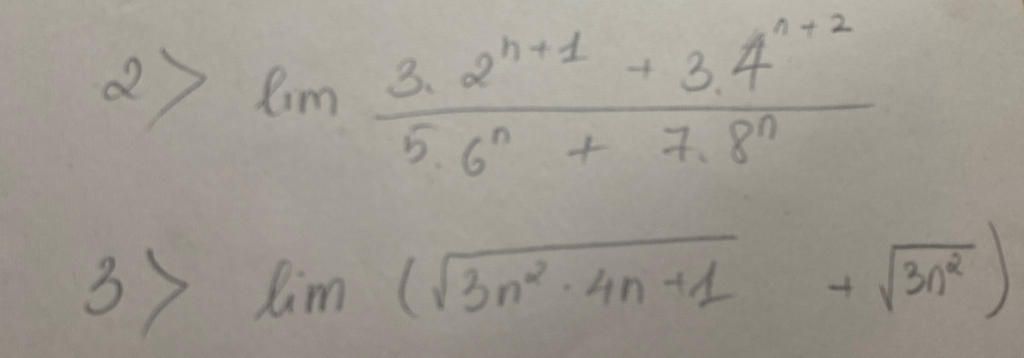 2> lim (3. 2^{n+1} + 3. 4^{n+2}) / (5. 6^n + 7. 8^n)
3> lim (√(3n² · 4n +1) + √(3n²))